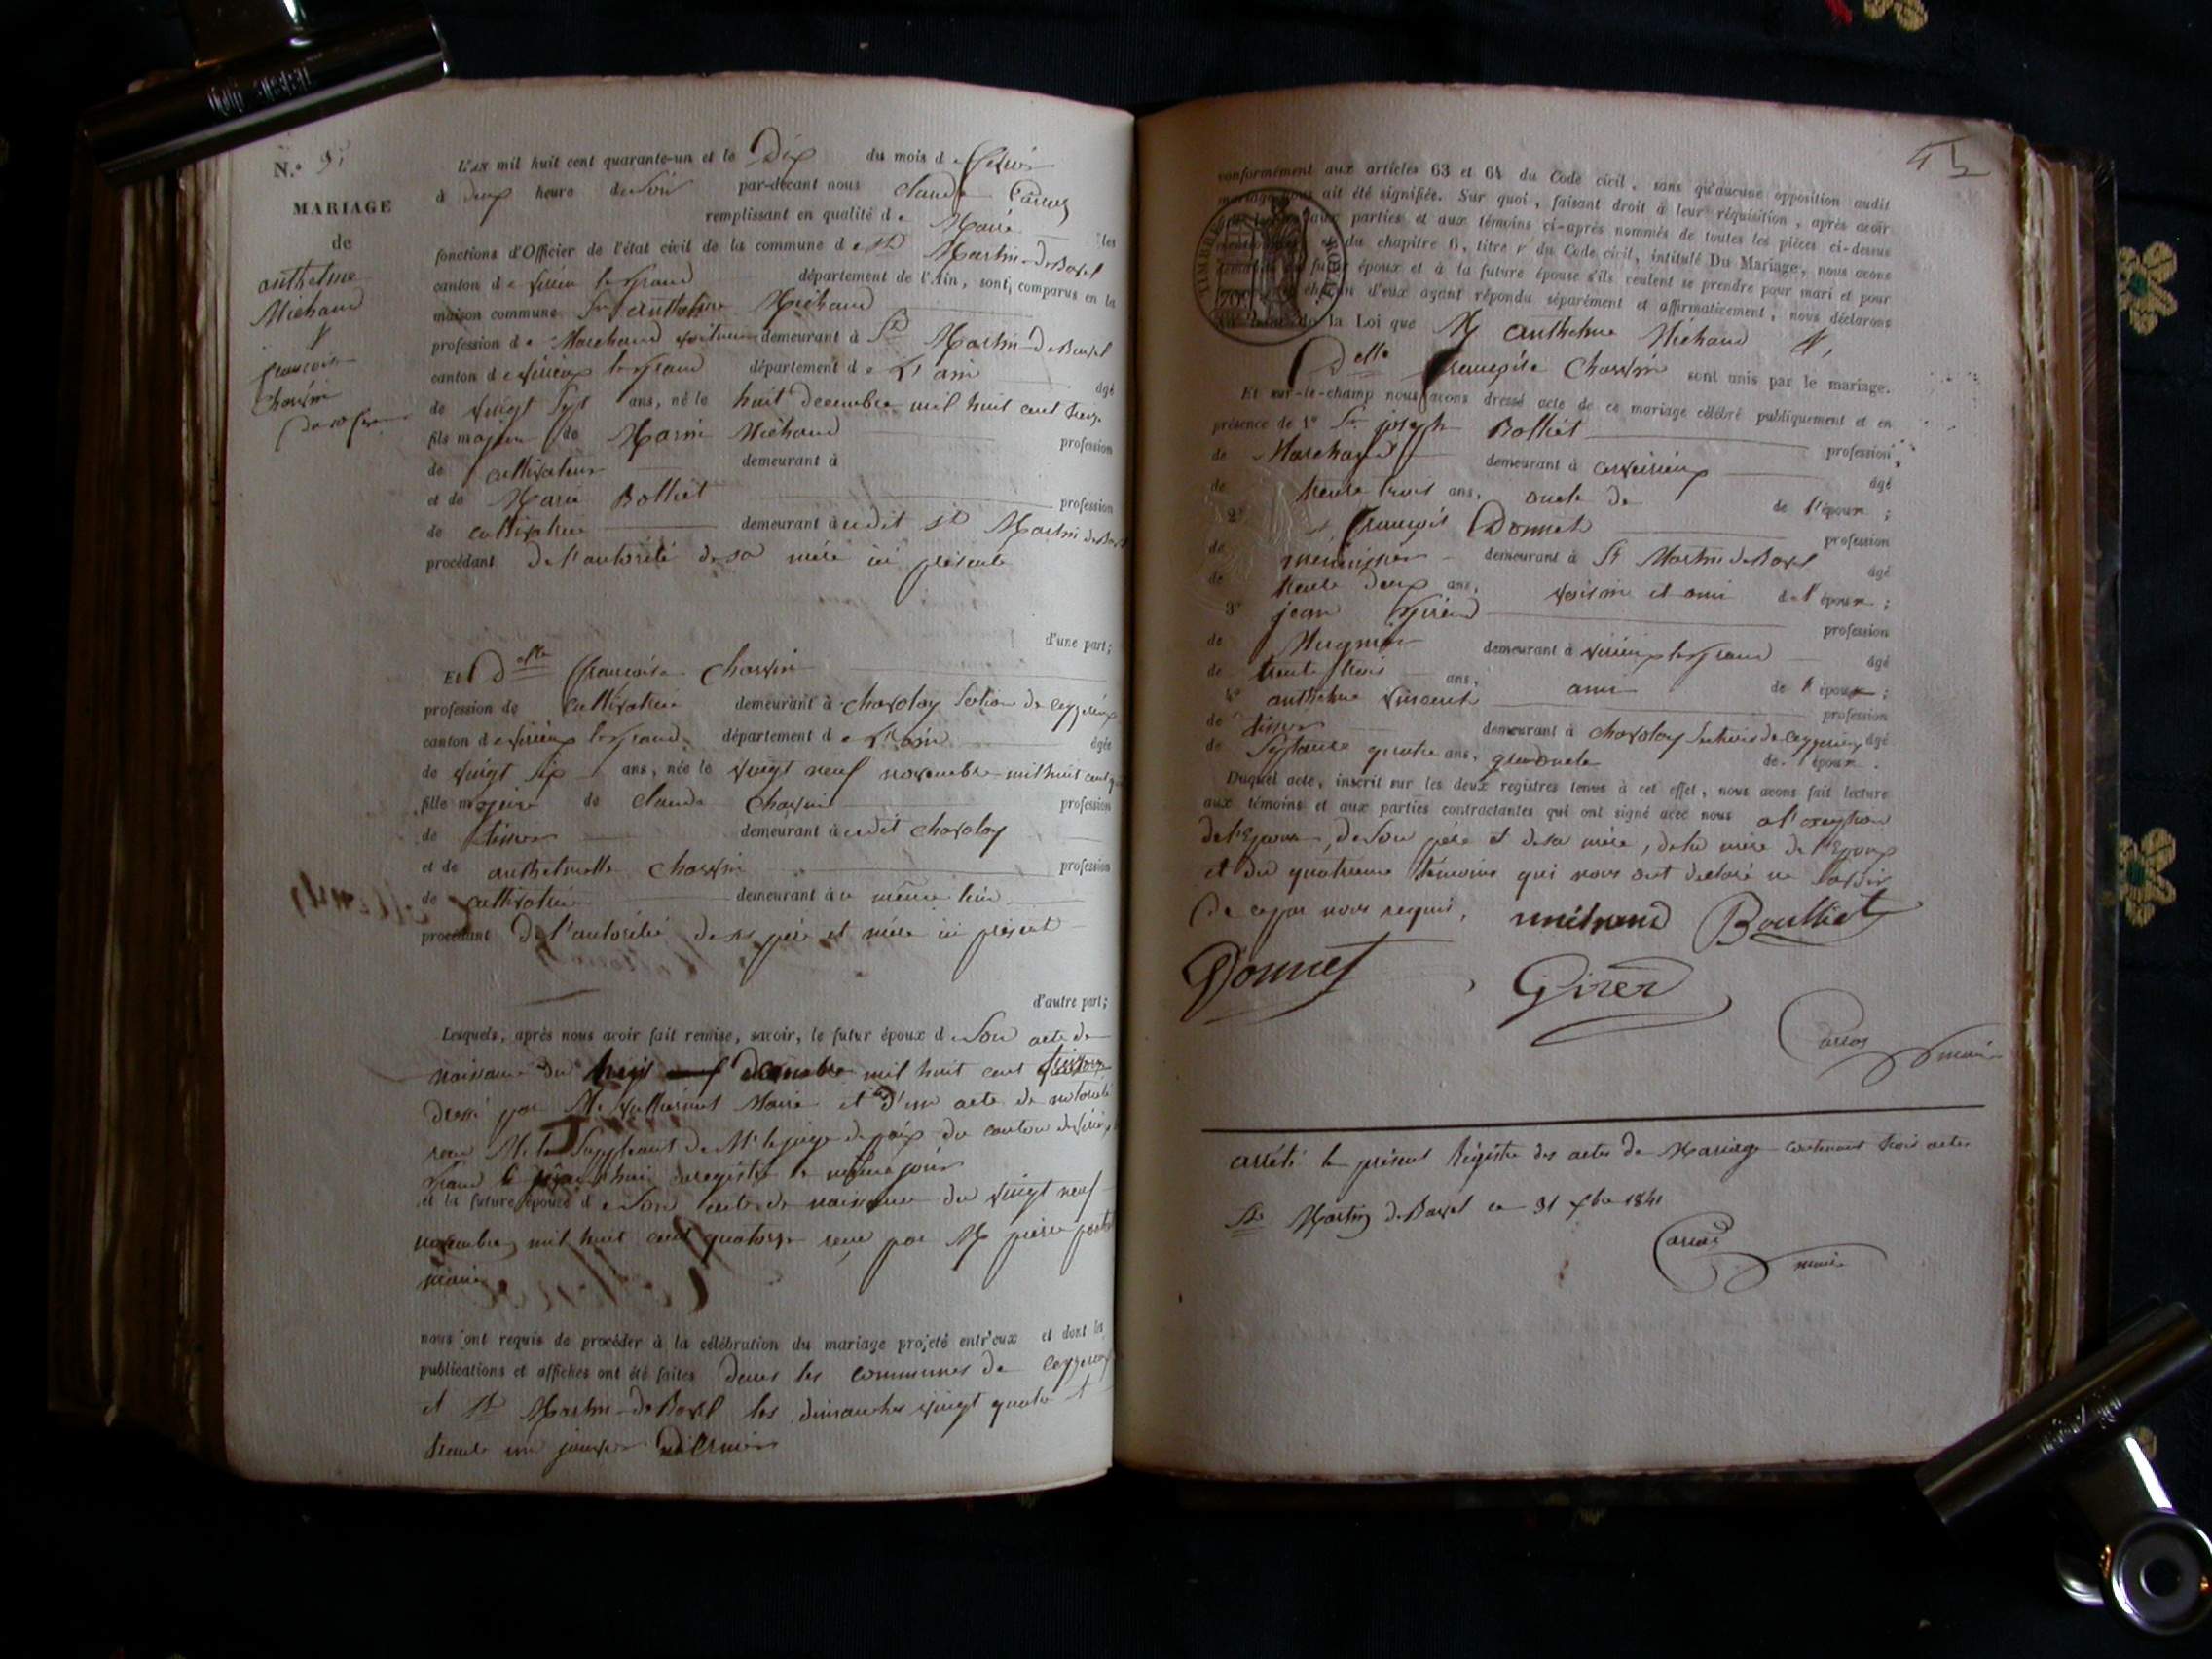 N.° 3
MARIAGE
de
anthelme
Michaud
&
francoise
Charvin
Du 10 fevrier
L'AN mil huit cent quarante-un et le Dix du mois de fevrier
à deux heure du soir par-devant nous Claude Carros
remplissant en qualité de Maire les
fonctions d'Officier de l'état civil de la commune de St Martin-de Bavel
canton de virieu le grand département de l'Ain, sont, comparus en la
maison commune Sr anthelme Michaud
profession de Marchand voiturier demeurant à St Martin-de Bavel
canton de virieux le grand département de L'ain âgé
de vingt sept ans, né le huit decembre mil huit cent treize
fils majeur de Marin Michaud profession
de cultivateur demeurant à
et de Marie Bolliet profession
de cultivatrice demeurant à udit St Martin de Bavel
procédant de l'autorité de sa mère ici présente
d'une part;
Et Delle francoise Charvin
profession de cultivatrice demeurant à Chavoley Section de Ceyzerieux
canton de virieux le grand département de L'ain âgée
de vingt six ans, née le vingt neuf novembre mil huit cent
fille majeure de Claude Charvin profession
de tissier demeurant à udit Chavoley
et de anthelmette Charvin profession
de cultivatrice demeurant à u même lieu
procédant de l'autorité de ses père et mère ici présent
d'autre part;
Lesquels, après nous avoir fait remise, savoir, le futur époux de son acte de
naissance du huit decembre mil huit cent treize
dressé par M. Maire et d'un acte de notoriété
M. le Suppleant de Mr le juge de paix du canton de virieu
grand enregistré le même jour
et la future épouse de son acte de naissance du vingt neuf
novembre mil huit cent quatorze reçu par M pierre
maire
nous ont requis de procéder à la célébration du mariage projeté entr'eux et dont les
publications et affiches ont été faites dans les communes de Ceyzerieux
et St Martin-de Bavel les dimanches vingt quatre &
trente un janvier dernier
45
conformément aux articles 63 et 64 du Code civil, sans qu'aucune opposition audit
mariage nous ait été signifiée. Sur quoi, faisant droit à leur réquisition, après avoir
aux parties et aux témoins ci-après nommés de toutes les pièces ci-dessus
du chapitre 6, titre v du Code civil, intitulé Du Mariage, nous avons
futur époux et à la future épouse s'ils veulent se prendre pour mari et pour
chacun d'eux ayant répondu séparément et affirmativement, nous déclarons
de la Loi que M anthelme Michaud &
TIMBRE ROYAL
Delle françoise Charvin sont unis par le mariage.
Et sur-le-champ nous avons dressé acte de ce mariage célébré publiquement et en
présence de 1° Sr joseph Bolliet profession
de Marchand demeurant à âgé
de trente trois ans, oncle de de l'époux ;
2° françois Donnet profession
de menuisier demeurant à St Martin de Bavel âgé
de trente deux ans, voisin et ami de l'époux ;
3° jean Girerd profession
de Meunier demeurant à virieux le grand âgé
de trente trois ans, ami de l'époux ;
4° anthelme vincent profession
de tissier demeurant à Chavoley Section de Ceyzerieux âgé
de Septante quatre ans, grand oncle de l'épouse.
Duquel acte, inscrit sur les deux registres tenus à cet effet, nous avons fait lecture
aux témoins et aux parties contractantes qui ont signé avec nous a l'exception
de l'Epouse, de son père et de sa mère, de la mère de l'Epoux
et du quatrieme témoins qui nous ont déclaré ne savoir
de ce par nous requis,
michaud Boulliet
Donnet Girer
Carros maire
Arrêté le présent Registre des actes de Mariage contenant trois actes
St Martin de Bavel ce 31 xbre 1841
Carros maire